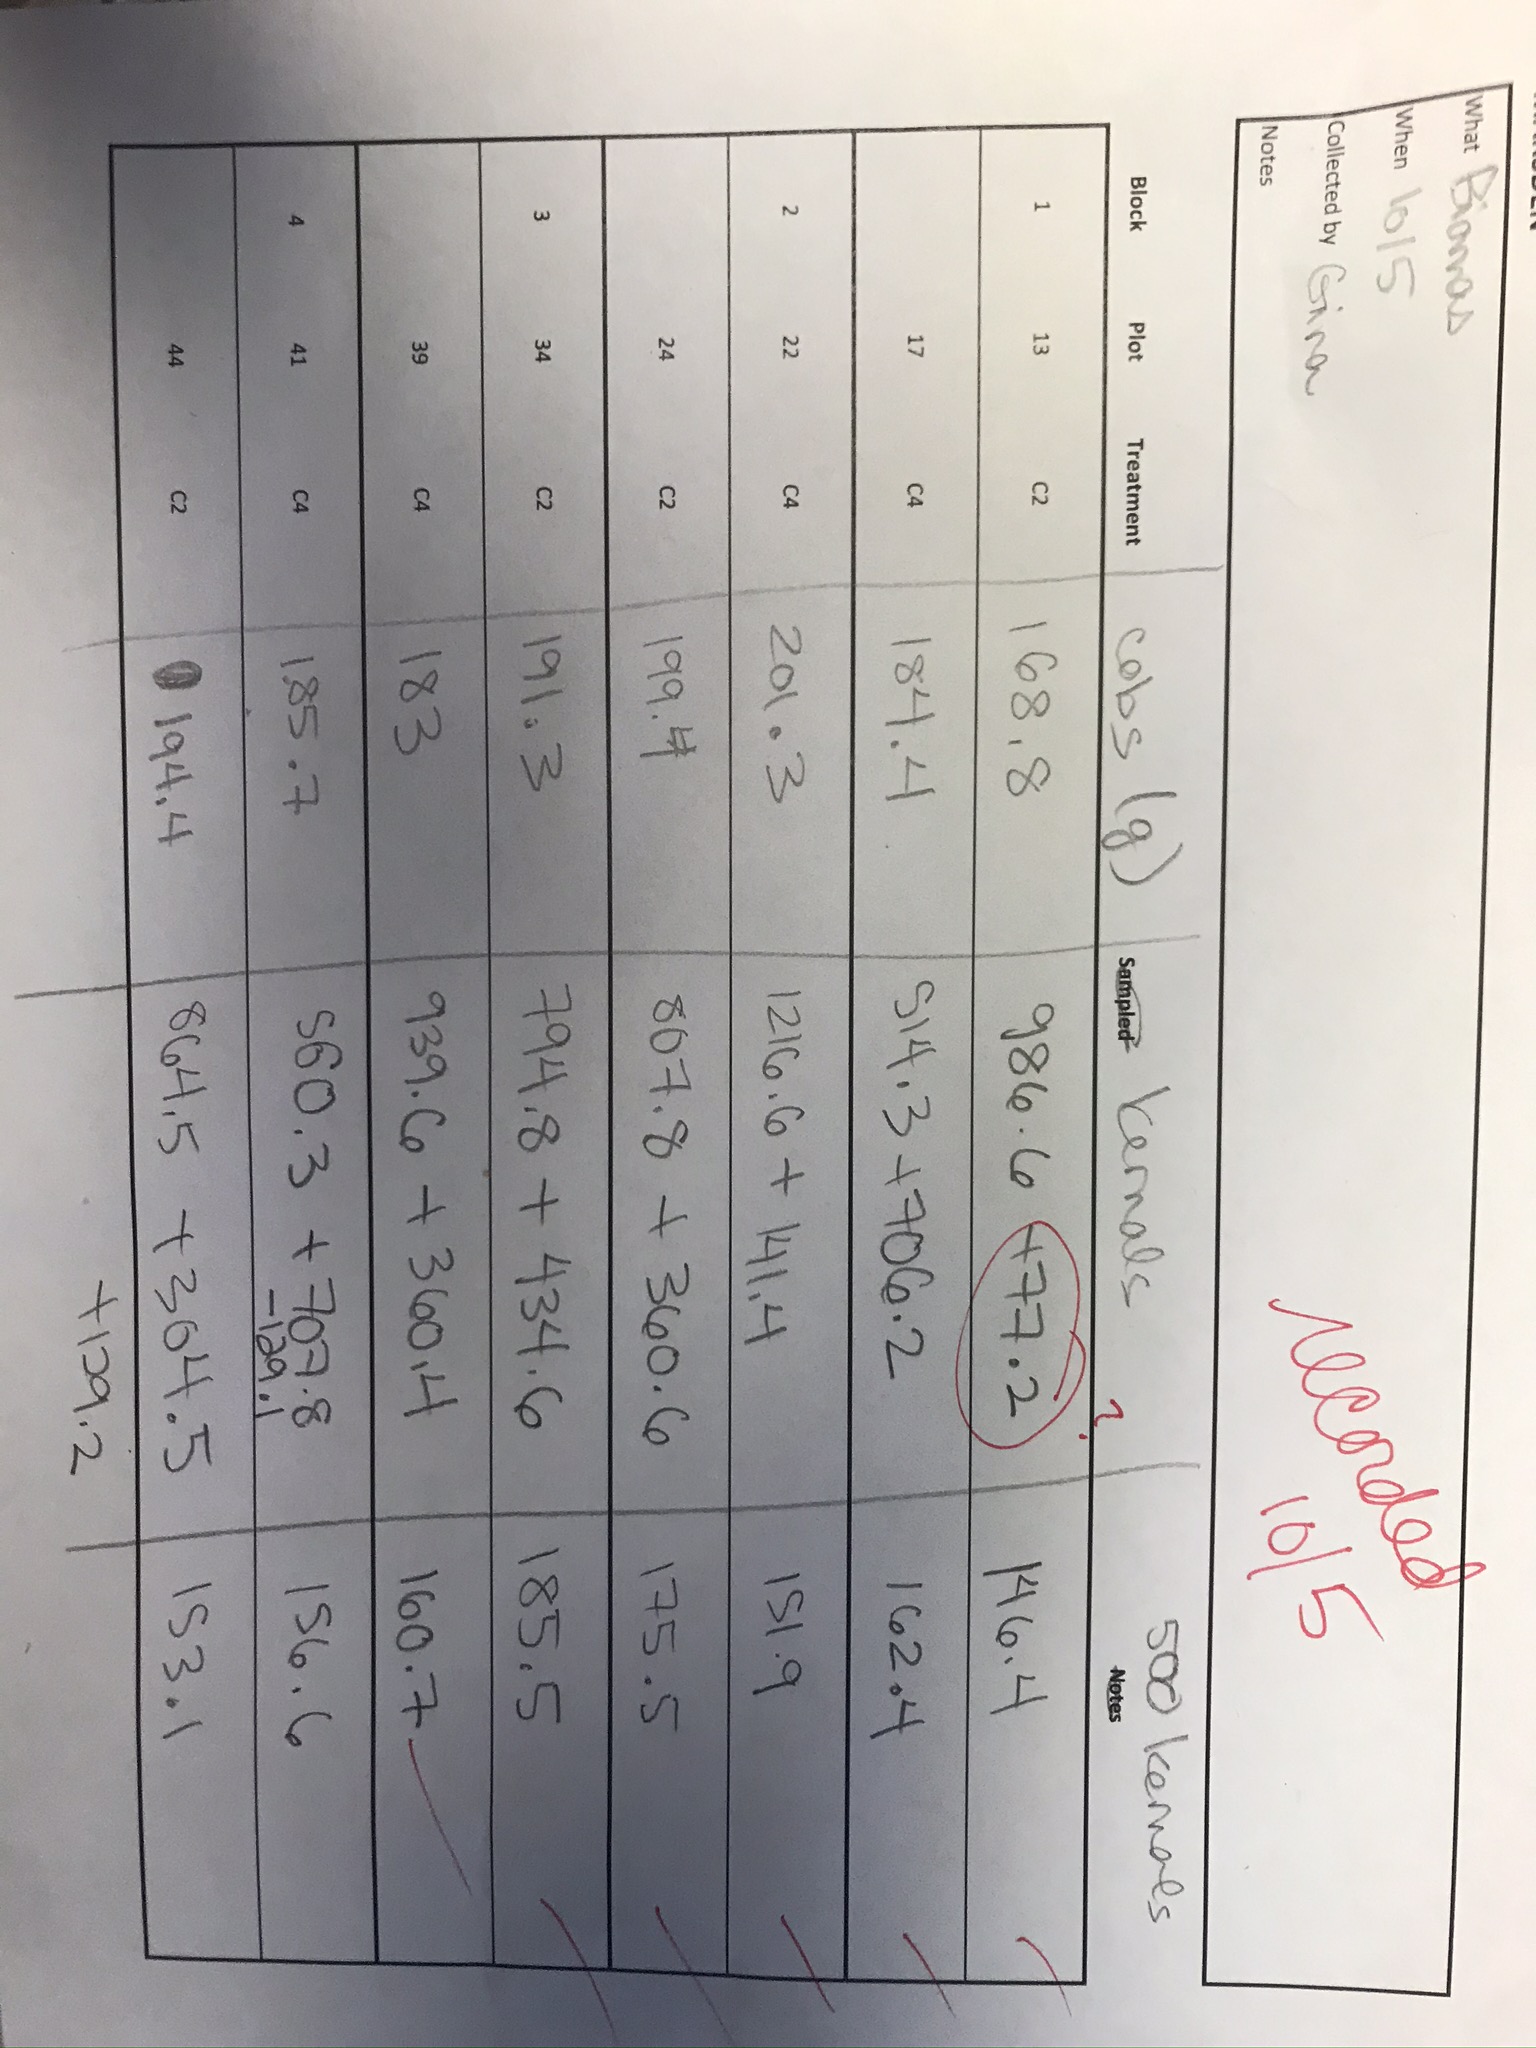 What Biomas
When 10/5
Collected by Gina
Notes
recorded
10/5
Block Plot Treatment cobs (g) Sampled kernals 500 kernals
Notes
?
1 13 C2 168.8 986.6 +77.2 146.4
17 C4 184.4 514.3 +706.2 162.4
2 22 C4 201.3 1216.6 + 141.4 151.9
24 C2 199.4 807.8 + 360.6 175.5
3 34 C2 191.3 794.8 + 434.6 185.5
39 C4 183 939.6 + 360.4 160.7
4 41 C4 185.7 560.3 + 707.8 156.6
-129.1
44 C2 194.4 864.5 +304.5 153.1
+129.2